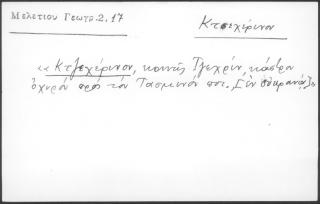 Μελετίου Γεωγρ. 2, 17
Κτσεχέρινον
« Κτζεχέρινον, κοινῶς Τζεχρίν, κάστρο
ὀχυρόν πρός τόν Τασμινόν ποτ. [ἐν Οὐκρανίᾳ]»